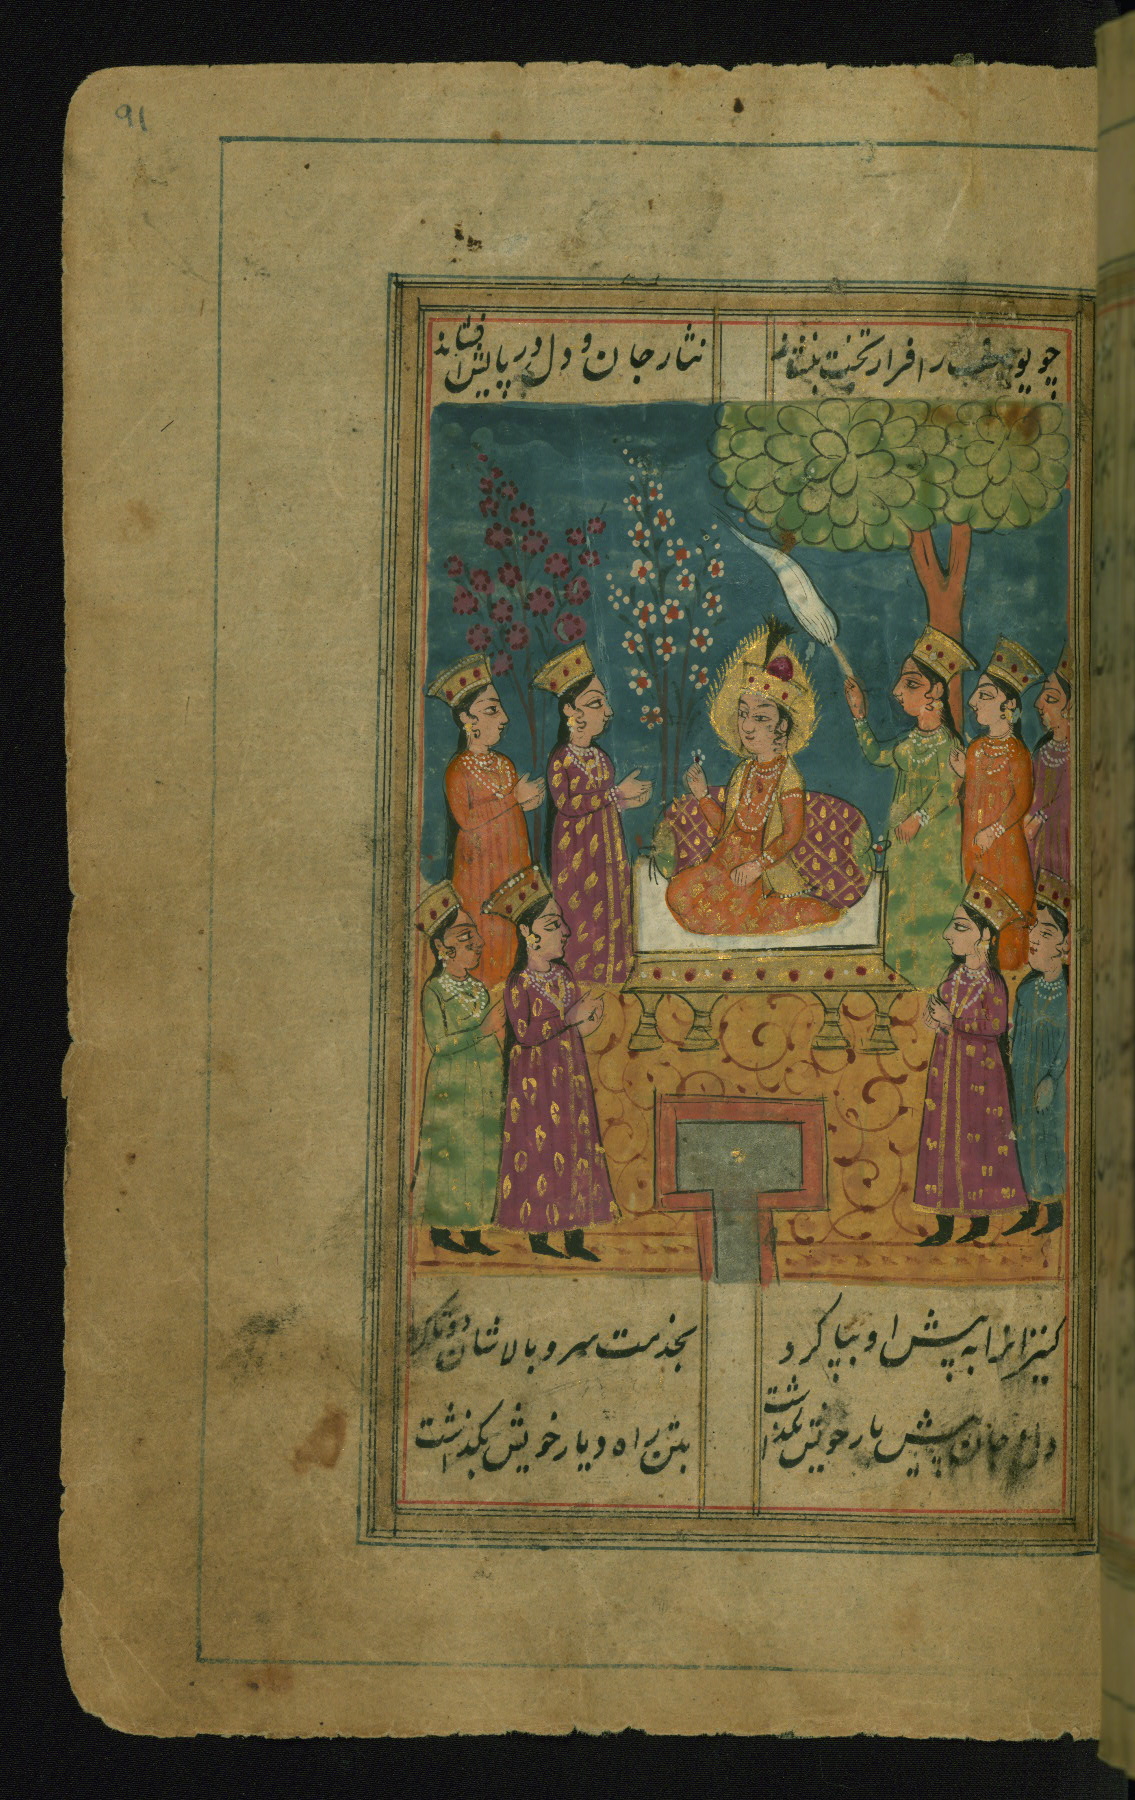 91
چو یوسف را فراز تخت بنشاند
نثار جان و دل در پایش افشاند
کنیزانرا به پیش او بپا کرد
بخدمت سرو بالاشان دوتا کرد
دل و جان پیش یار خویش بگذاشت
بتن راه دیار خویش بگذاشت